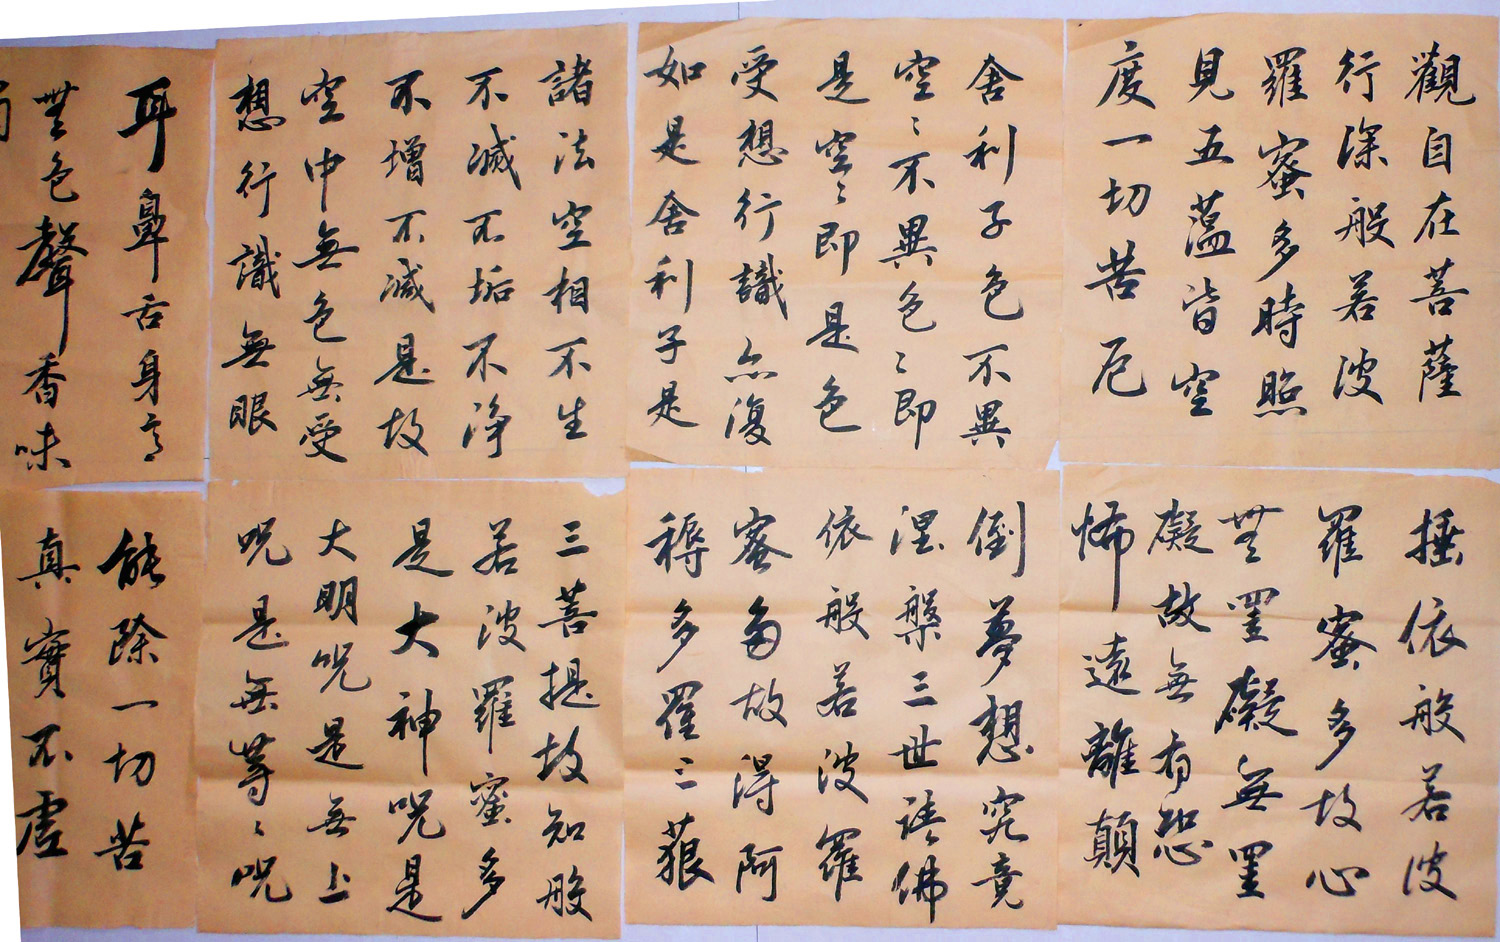 觀自在菩薩
行深般若波
羅蜜多時照
見五蘊皆空
度一切苦厄
舍利子色不異
空〻不異色〻即
是空〻即是色
受想行識亦復
如是舍利子是
諸法空相不生
不滅不垢不净
不增不減是故
空中無色無受
想行識無眼
耳鼻舌身意
無色聲香味
埵依般若波
羅蜜多故心
無罣礙無罣
礙故無有恐
怖遠離顛
倒夢想究竟
涅槃三世諸佛
依般若波羅
蜜多故得阿
耨多羅三藐
三菩提故知般
若波羅蜜多
是大神咒是
大明咒是無上
咒是無等〻咒
能除一切苦
真實不虛